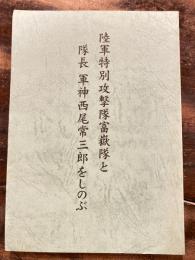 陸軍特別攻撃隊富嶽隊と
隊長軍神西尾常三郎をしのぶ